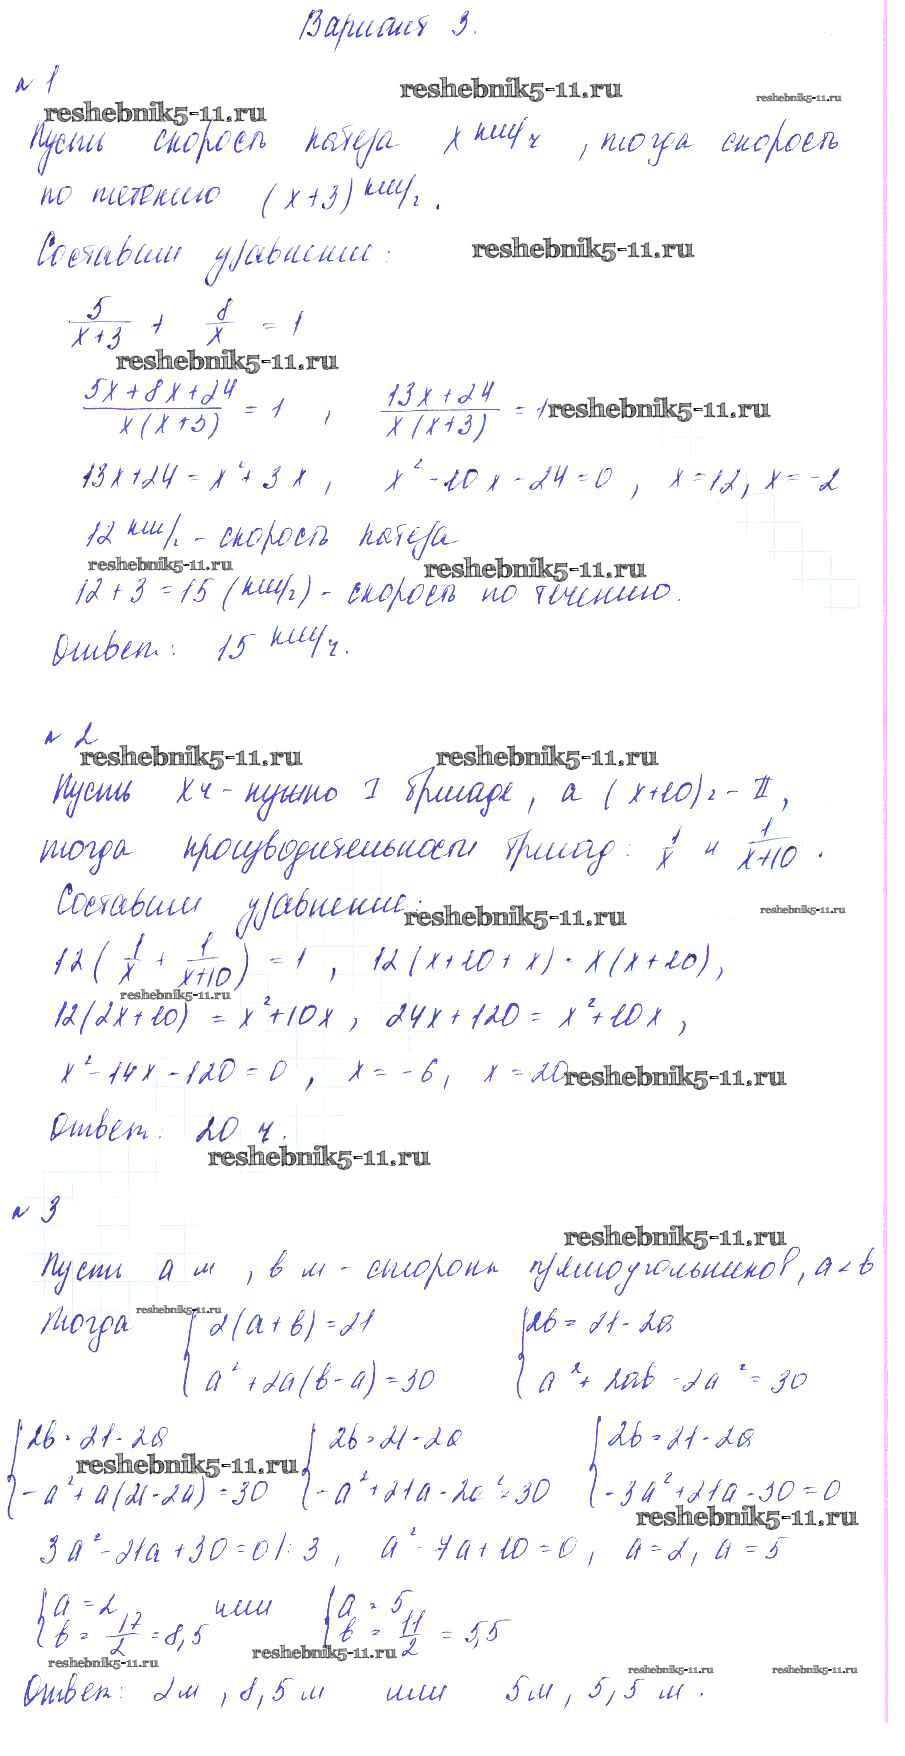 Вариант 3.
№ 1
reshebnik5-11.ru reshebnik5-11.ru reshebnik5-11.ru
Пусть скорость катера x км/ч, тогда скорость
по течению (x+3) км/ч.
Составим уравнение: reshebnik5-11.ru
5/(x+3) + 8/x = 1
reshebnik5-11.ru
(5x+8x+24)/(x(x+3)) = 1, (13x+24)/(x(x+3)) = 1 reshebnik5-11.ru
13x+24=x²+3x, x²-10x-24=0, x=12, x=-2
12 км/ч - скорость катера
reshebnik5-11.ru reshebnik5-11.ru
12+3=15 (км/ч) - скорость по течению.
Ответ: 15 км/ч.
№ 2
reshebnik5-11.ru reshebnik5-11.ru
Пусть x ч - нужно I бригаде, а (x+10) ч - II,
тогда производительности бригад: 1/x и 1/(x+10).
Составим уравнение: reshebnik5-11.ru reshebnik5-11.ru
12(1/x + 1/(x+10)) = 1, 12(x+10+x) = x(x+10),
reshebnik5-11.ru
12(2x+10) = x²+10x, 24x+120 = x²+10x,
x²-14x-120=0, x=-6, x=20 reshebnik5-11.ru
Ответ: 20 ч.
reshebnik5-11.ru
№ 3
reshebnik5-11.ru
Пусть a м, b м - стороны прямоугольников, a<b
reshebnik5-11.ru
Тогда { 2(a+b)=21 { 2b=21-2a
a²+2a(b-a)=30 a²+2ab-2a²=30
{ 2b=21-2a { 2b=21-2a { 2b=21-2a
reshebnik5-11.ru
-a²+a(21-2a)=30 -a²+21a-2a²=30 -3a²+21a-30=0
reshebnik5-11.ru
3a²-21a+30=0 |:3, a²-7a+10=0, a=2, a=5
{ a=2 или { a=5
b=17/2=8,5 b=11/2=5,5
reshebnik5-11.ru reshebnik5-11.ru reshebnik5-11.ru reshebnik5-11.ru
Ответ: 2м, 8,5м или 5м, 5,5м.